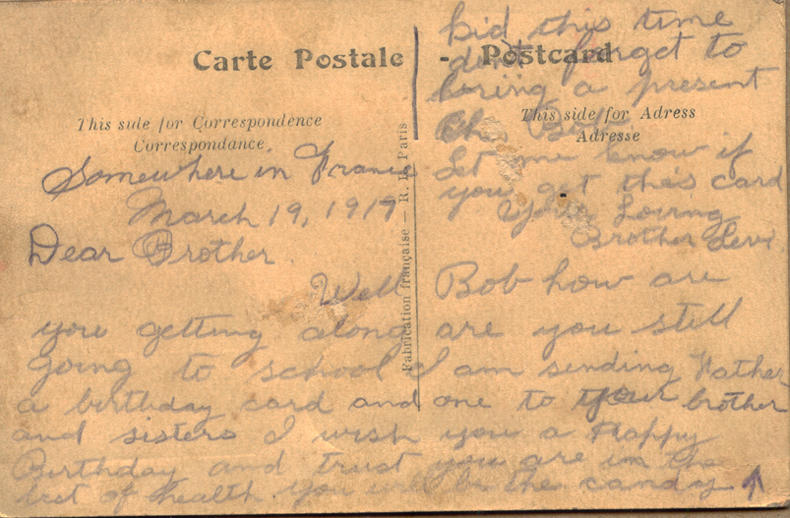 Carte Postale - Postcard
This side for Correspondence
Correspondance.
This side for Adress
Adresse
Fabrication française — R. Paris
Somewhere in France
March 19, 1917
Dear Brother.
Well Bob how are
you getting along are you still
going to school I am sending Father
a birthday card and one to your brother
and sisters I wish you a Happy
Birthday and trust you are in the
best of health. you will be the candy
kid this time
dont forget to
bring a present
Let me know if
you get this card
Your Loving
Brother Levi